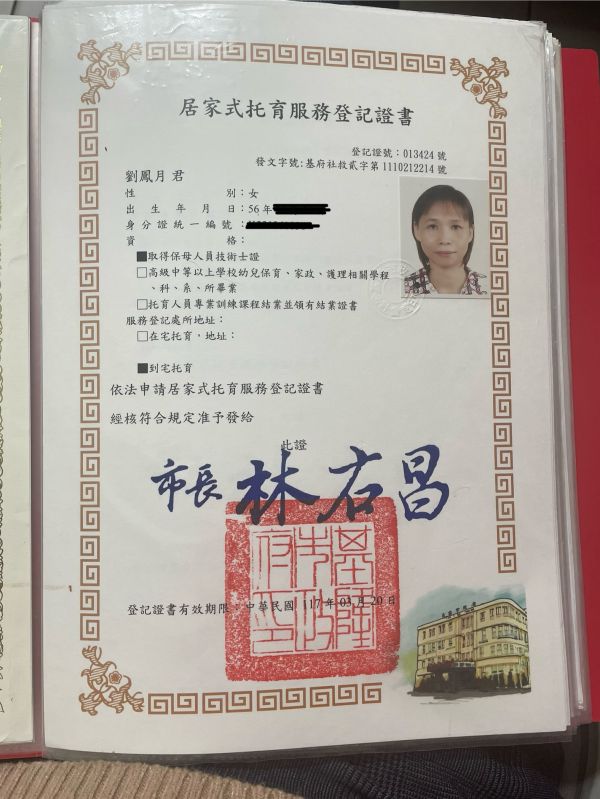 居家式托育服務登記證書
登記證號：013424號
發文字號:基府社救貳字第1110212214號
劉鳳月 君
性別：女
出生年月日：56年
身分證統一編號：
資格：
■取得保母人員技術士證
□高級中等以上學校幼兒保育、家政、護理相關學程
、科、系、所畢業
□托育人員專業訓練課程結業並領有結業證書
服務登記處所地址：
□在宅托育，地址：
■到宅托育
依法申請居家式托育服務登記證書
經核符合規定准予發給
此證
市長 林右昌
基隆市政府印
登記證書有效期限：中華民國 117年 03月 20日